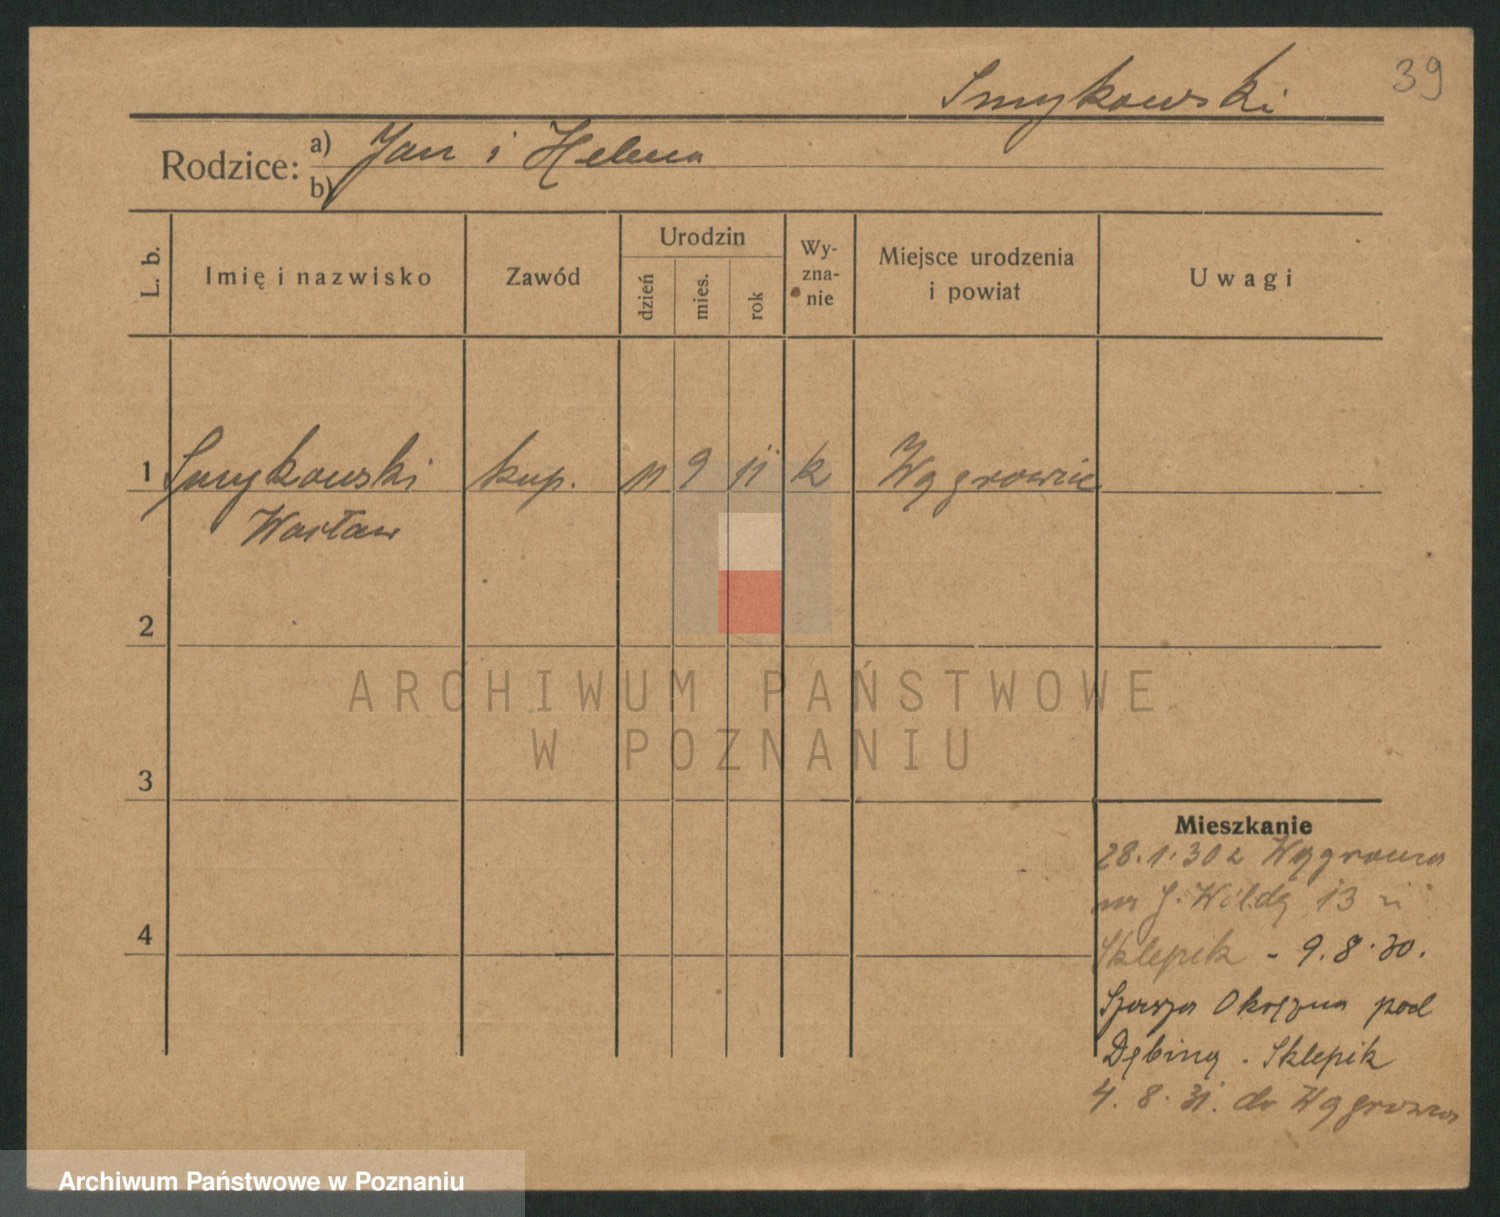 39
Smykowski
Rodzice: a) Jan i Helena
b)
L. b.
Imię i nazwisko
Zawód
Urodzin
dzień
mies.
rok
Wy-
zna-
nie
Miejsce urodzenia
i powiat
Uwagi
1 Smykowski kup. 11 9 11 k Wągrowiec
Wacław
2
3
4
Mieszkanie
28.1.30 z Wągrowca
na G. Wildę 13 u
Sklepik - 9.8.30.
Szosa Okrężna pod
Dębiną. Sklepik
4.8.31. do Wągrowca
ARCHIWUM PAŃSTWOWE
W POZNANIU
Archiwum Państwowe w Poznaniu